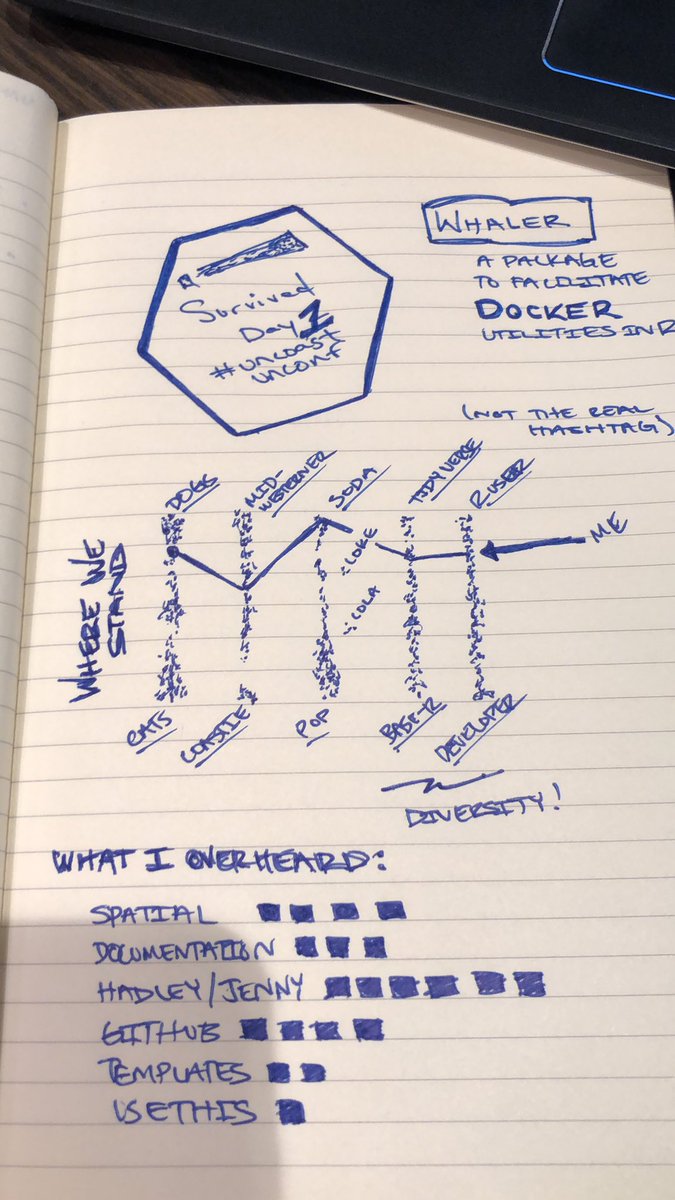 WHALER
A PACKAGE
TO FACILITATE
DOCKER
UTILITIES IN R
Survived
Day 1
#uncoast
unconf
(NOT THE REAL
HASHTAG)
WHERE WE
STAND
DOGS
MID-
WESTERNER
SODA
TIDYVERSE
R USER
COKE
COLA
ME
CATS
COASTIE
POP
BASE-R
DEVELOPER
DIVERSITY!
WHAT I OVERHEARD:
SPATIAL
DOCUMENTATION
HADLEY/JENNY
GITHUB
TEMPLATES
USETHIS